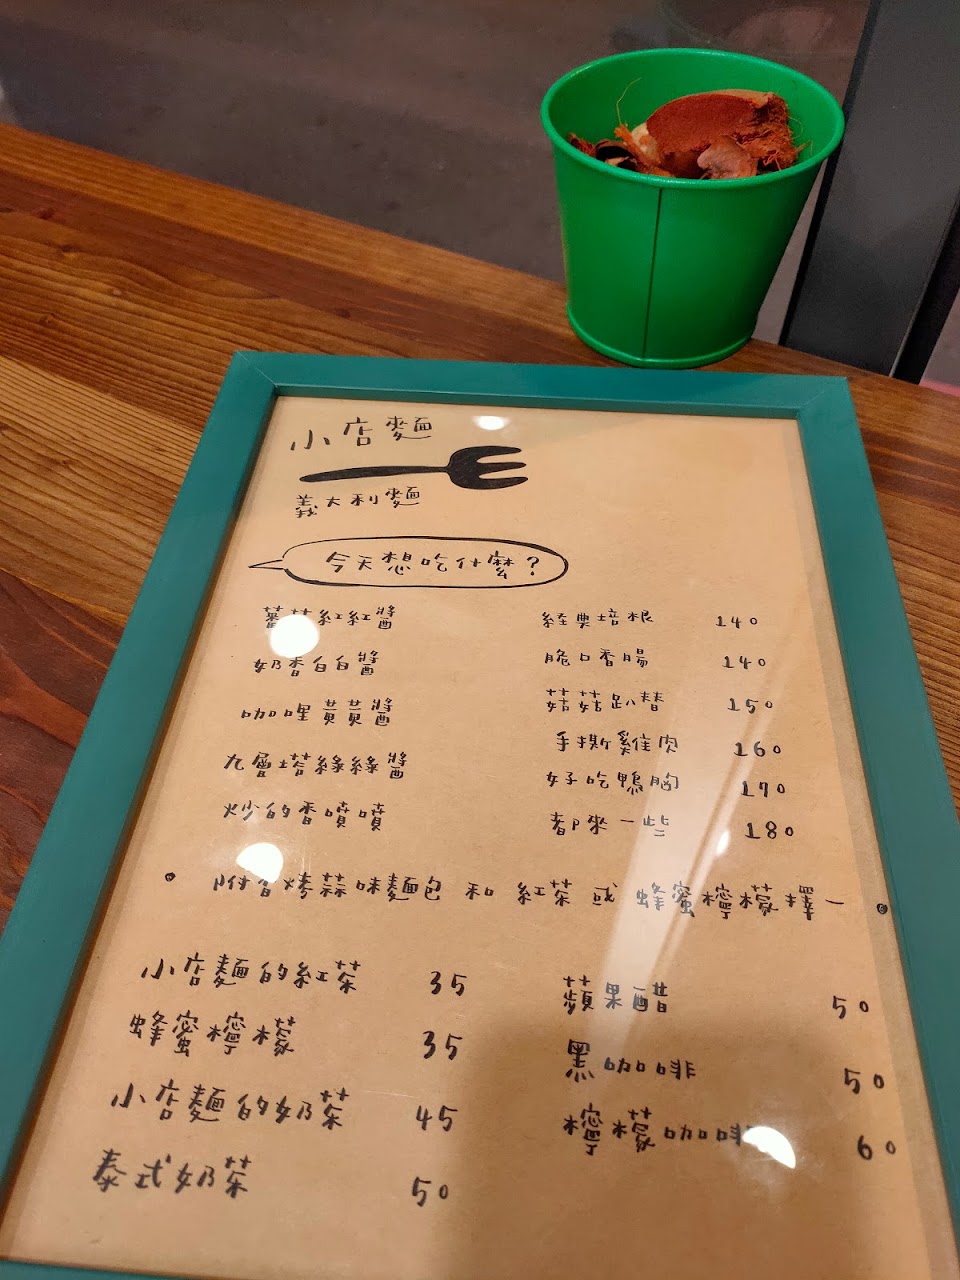 小店麵
義大利麵
今天想吃什麼?
蕃茄紅紅醬
奶香白白醬
咖哩黃黃醬
九層塔綠綠醬
炒的香噴噴
經典培根 140
脆口香腸 140
菇菇趴替 150
手撕雞肉 160
好吃鴨胸 170
都來一些 180
• 附香烤蒜味麵包 和 紅茶 或 蜂蜜檸檬擇一 •
小店麵的紅茶 35
蜂蜜檸檬 35
小店麵的奶茶 45
泰式奶茶 50
蘋果醋 50
黑咖啡 50
檸檬咖啡 60